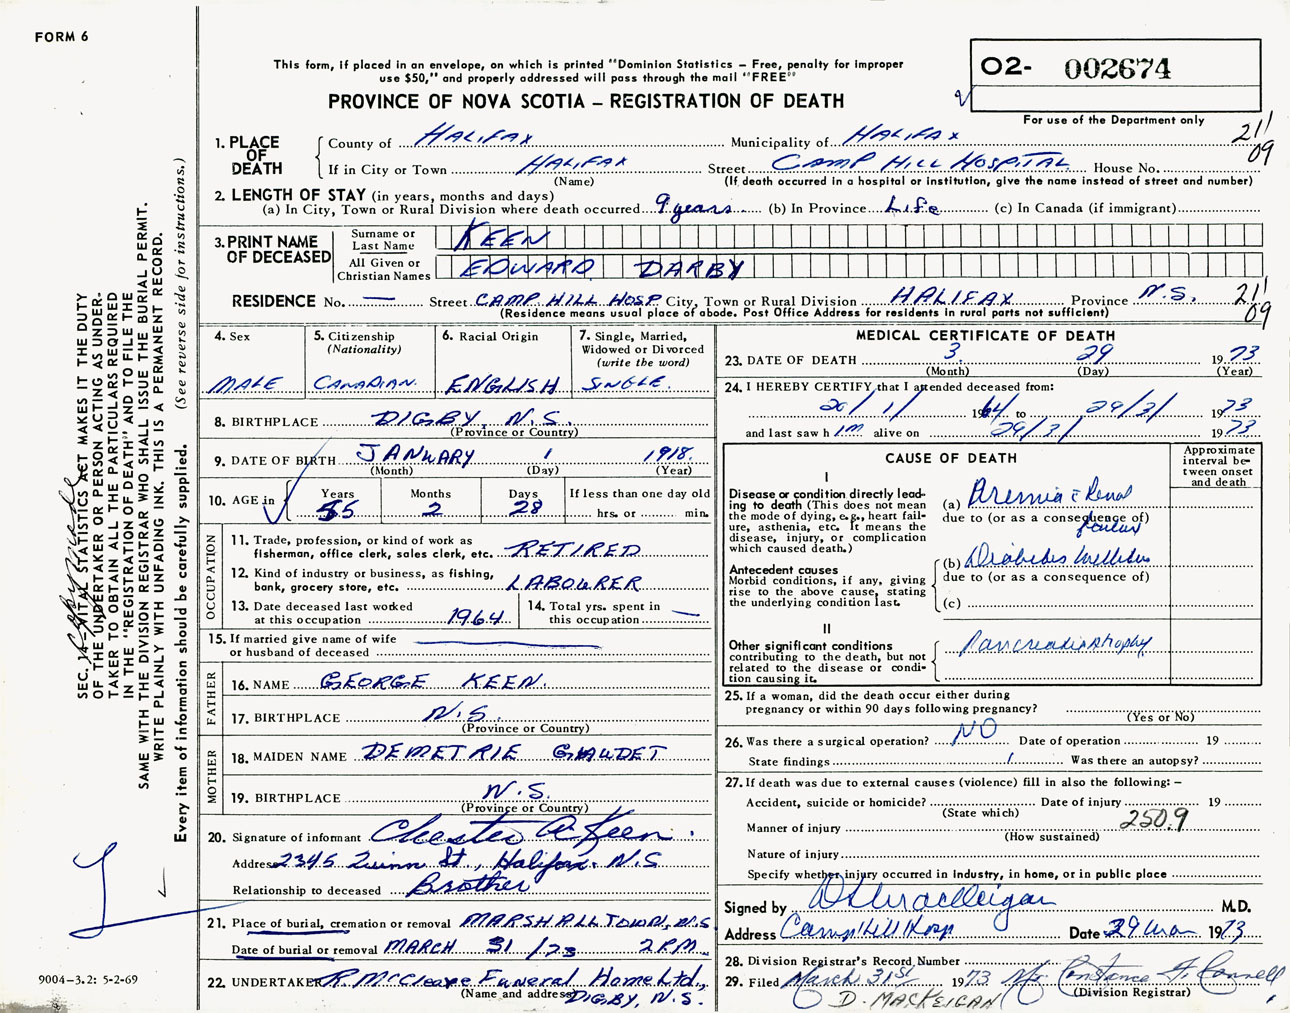 FORM 6
This form, if placed in an envelope, on which is printed "Dominion Statistics – Free, penalty for improper
use $50," and properly addressed will pass through the mail "FREE"
PROVINCE OF NOVA SCOTIA – REGISTRATION OF DEATH
02- 002674
For use of the Department only
211
09
1. PLACE OF DEATH
County of HALIFAX Municipality of HALIFAX
If in City or Town HALIFAX Street CAMP HILL HOSPITAL House No.
(Name) (If death occurred in a hospital or institution, give the name instead of street and number)
2. LENGTH OF STAY (in years, months and days)
(a) In City, Town or Rural Division where death occurred 9 years (b) In Province Life (c) In Canada (if immigrant)
3. PRINT NAME OF DECEASED
Surname or Last Name KEEN
All Given or Christian Names EDWARD DARBY
RESIDENCE No. — Street CAMP HILL HOSP City, Town or Rural Division HALIFAX Province N.S.
(Residence means usual place of abode. Post Office Address for residents in rural parts not sufficient)
211
09
4. Sex
MALE
5. Citizenship
(Nationality)
CANADIAN
6. Racial Origin
ENGLISH
7. Single, Married,
Widowed or Divorced
(write the word)
SINGLE
8. BIRTHPLACE DIGBY, N.S.
(Province or Country)
9. DATE OF BIRTH JANUARY 1 1918.
(Month) (Day) (Year)
10. AGE in Years Months Days If less than one day old
55 2 28 hrs. or min.
OCCUPATION
11. Trade, profession, or kind of work as
fisherman, office clerk, sales clerk, etc. RETIRED
12. Kind of industry or business, as fishing,
bank, grocery store, etc. LABOURER
13. Date deceased last worked
at this occupation 1964
14. Total yrs. spent in
this occupation —
15. If married give name of wife
or husband of deceased
FATHER
16. NAME GEORGE KEEN.
17. BIRTHPLACE N.S.
(Province or Country)
MOTHER
18. MAIDEN NAME DEMETRIE GAUDET
19. BIRTHPLACE N.S.
(Province or Country)
20. Signature of informant Chester A. Keen.
Address 2345 Quinn St., Halifax. N.S
Relationship to deceased Brother
21. Place of burial, cremation or removal MARSHALLTOWN, N.S
Date of burial or removal MARCH 31 /73 2 P.M.
22. UNDERTAKER R. McCleave Funeral Home Ltd.,
(Name and address) DIGBY, N.S.
MEDICAL CERTIFICATE OF DEATH
23. DATE OF DEATH 3 29 1973
(Month) (Day) (Year)
24. I HEREBY CERTIFY that I attended deceased from:
20/1/ 1964 to 29/3/ 1973
and last saw h im alive on 29/3/ 1973
CAUSE OF DEATH
Approximate
interval be-
tween onset
and death
I
Disease or condition directly lead-
ing to death (This does not
mean the mode of dying, e.g., heart fail-
ure, asthenia, etc. It means the
disease, injury, or complication
which caused death.)
(a) Uremia c Renal
due to (or as a consequence of)
failure
Antecedent causes
Morbid conditions, if any, giving
rise to the above cause, stating
the underlying condition last.
(b) Diabetes Mellitus
due to (or as a consequence of)
(c)
II
Other significant conditions
contributing to the death, but not
related to the disease or condi-
tion causing it.
Pancreatic atrophy
25. If a woman, did the death occur either during
pregnancy or within 90 days following pregnancy?
(Yes or No)
26. Was there a surgical operation? NO Date of operation 19
State findings Was there an autopsy?
27. If death was due to external causes (violence) fill in also the following: –
Accident, suicide or homicide? Date of injury 19
(State which)
Manner of injury 250.9
(How sustained)
Nature of injury
Specify whether injury occurred in industry, in home, or in public place
Signed by D S MacKeigan M.D.
Address Camp Hill Hosp Date 29 Mar 1973
28. Division Registrar's Record Number
29. Filed March 31st 1973 Mrs. Constance F. Connell
(Division Registrar)
D. MACKEIGAN
SEC. VITAL STATISTICS ACT MAKES IT THE DUTY
OF THE UNDERTAKER OR PERSON ACTING AS UNDER-
TAKER TO OBTAIN ALL THE PARTICULARS REQUIRED
IN THE "REGISTRATION OF DEATH" AND TO FILE THE
SAME WITH THE DIVISION REGISTRAR WHO SHALL ISSUE THE BURIAL PERMIT.
WRITE PLAINLY WITH UNFADING INK. THIS IS A PERMANENT RECORD.
Every item of information should be carefully supplied. (See reverse side for instructions.)
9004-3.2: 5-2-69